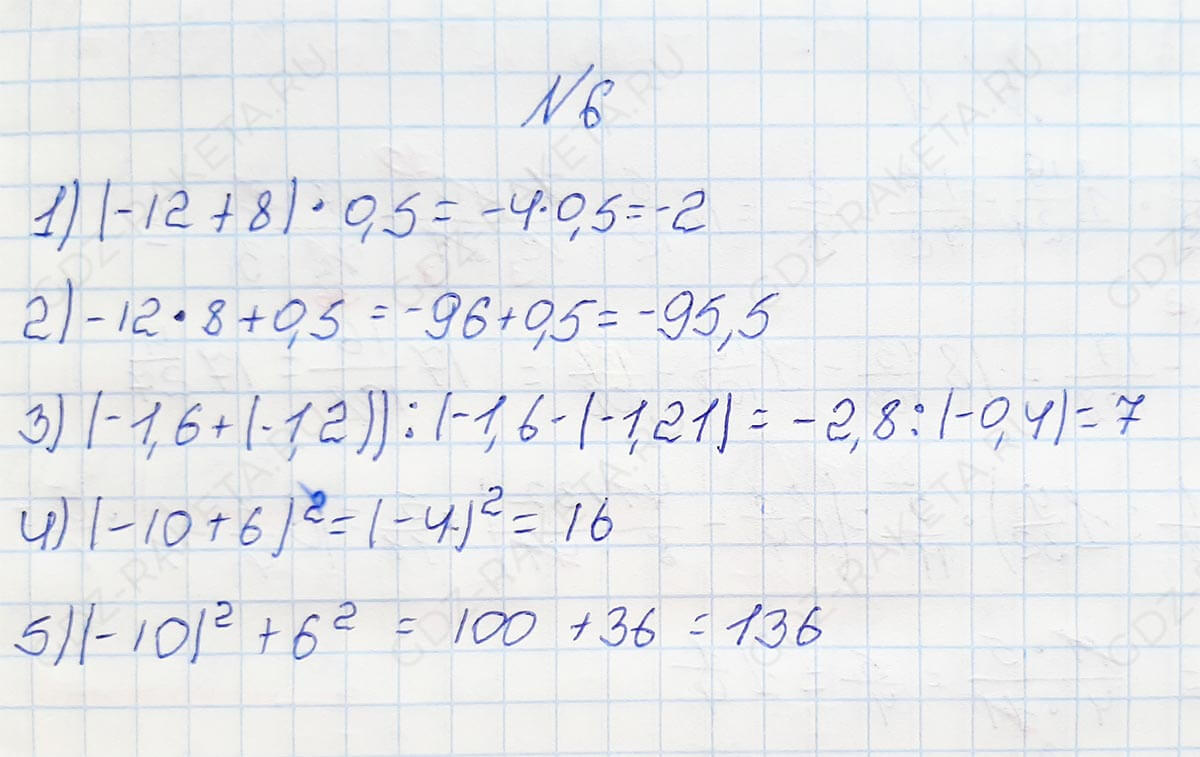 №6
1) (-12 + 8) · 0,5 = -4 · 0,5 = -2
2) -12 · 8 + 0,5 = -96 + 0,5 = -95,5
3) (-1,6 + (-1,2)) : (-1,6 - (-1,2)) = -2,8 : (-0,4) = 7
4) (-10 + 6)² = (-4)² = 16
5) (-10)² + 6² = 100 + 36 = 136
GDZ-RAKETA.RU